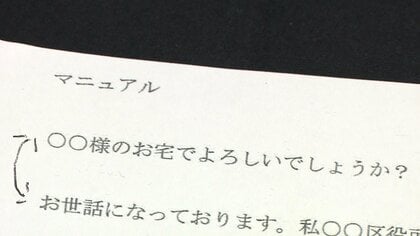 マニュアル
○○様のお宅でよろしいでしょうか?
お世話になっております。私○○区役